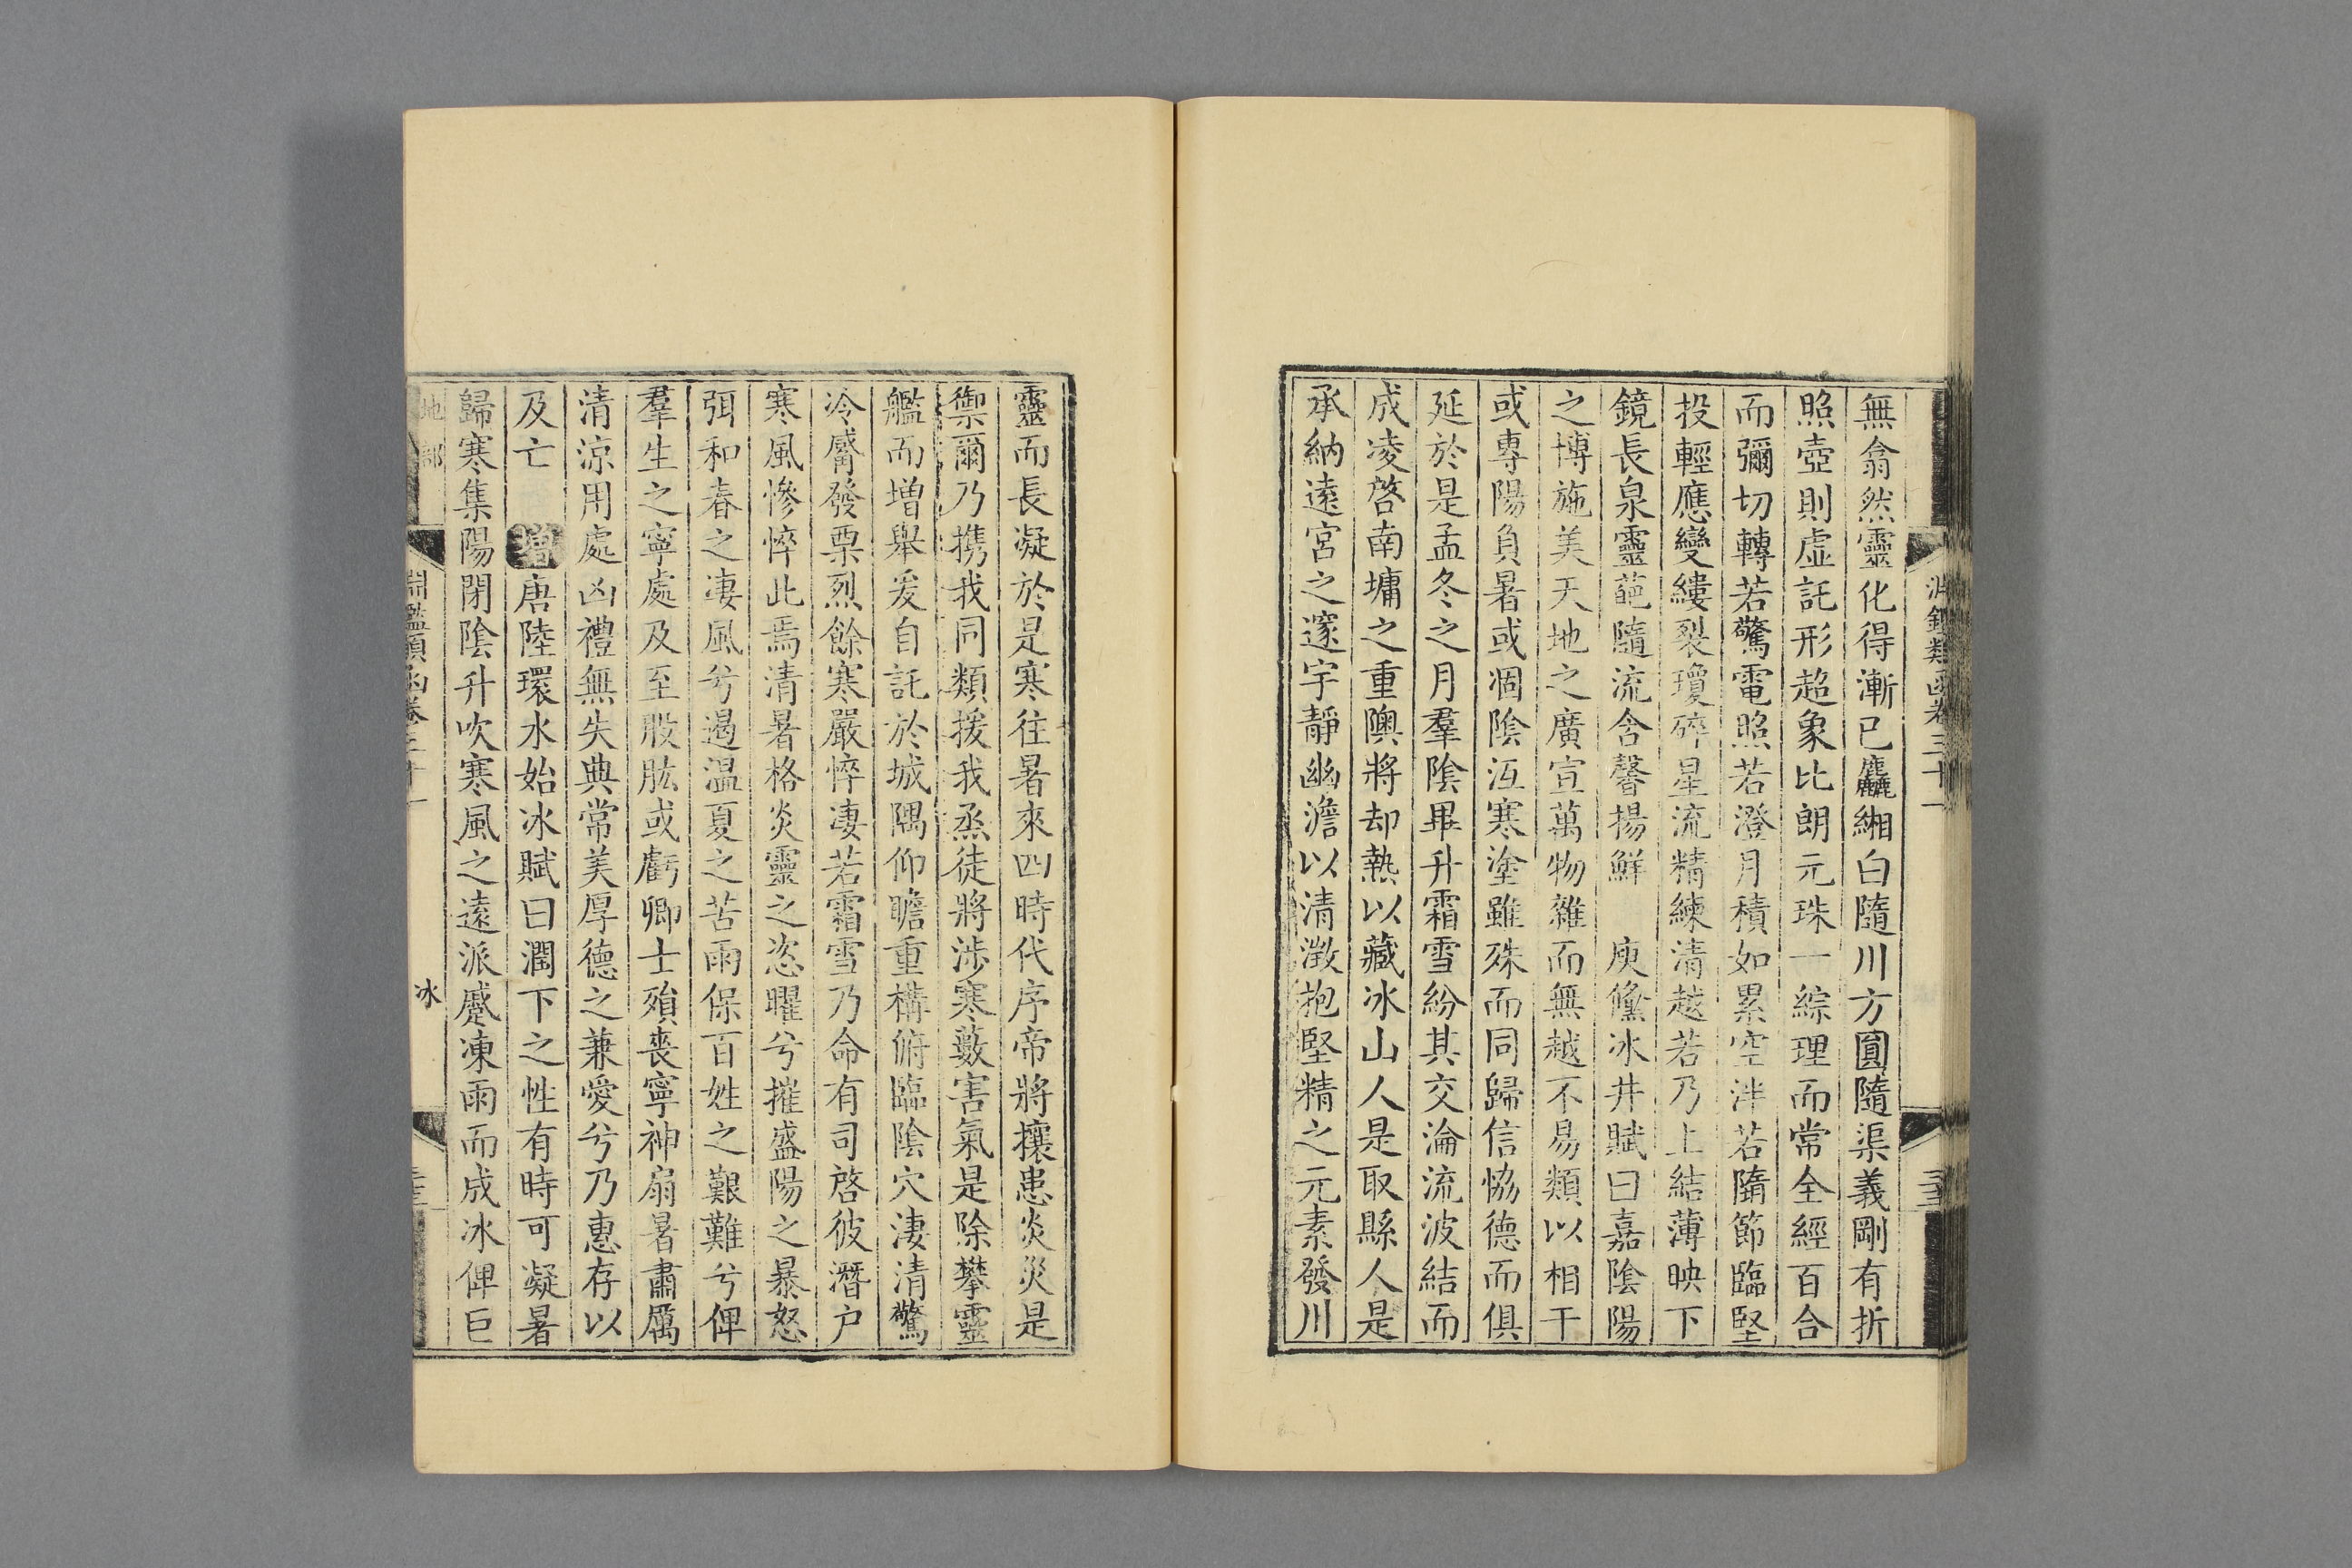 淵鑑類函卷三十一
無翕然靈化得漸已麤緗白隨川方圓隨渠義剛有折
照壺則虛託形超象比朗元珠一綜理而常全經百合
而彌切轉若驚電照若澄月積如累空泮若隨節臨堅
投輕應變縷裂瓊碎星流精練清越若乃上結薄映下
鏡長泉靈葩隨流含馨揚鮮　庾鯈冰井賦曰嘉陰陽
之博施美天地之廣宣萬物雜而無越不易類以相干
或專陽負暑或涸陰沍寒塗雖殊而同歸信恊德而俱
延於是孟冬之月羣陰畢升霜雪紛其交淪流波結而
成凌啓南墉之重隩將却熱以藏冰山人是取縣人是
承納遠宮之邃宇靜幽澹以清澂抱堅精之元素發川
靈而長凝於是寒往暑來四時代序帝將攘患炎災是
禦爾乃携我同類援我烝徒將涉寒藪害氣是除攀靈
艦而增舉爰自託於城隅仰瞻重構俯臨陰穴淒清驚
冷觱發栗烈餘寒嚴悴淒若霜雪乃命有司啓彼潛户
寒風慘悴此焉清暑格炎靈之恣曜兮摧盛陽之暴怒
弭和春之淒風兮遏温夏之苦雨保百姓之艱難兮俾
羣生之寧處及至股肱或虧卿士殞喪寧神扇暑肅厲
清涼用處凶禮無失典常美厚德之兼愛兮乃惠存以
及亡　增唐陸環水始冰賦曰潤下之性有時可凝暑
歸寒集陽閉陰升吹寒風之遠派蹙凍雨而成冰俾巨
地部
淵鑑類函卷三十一
冰